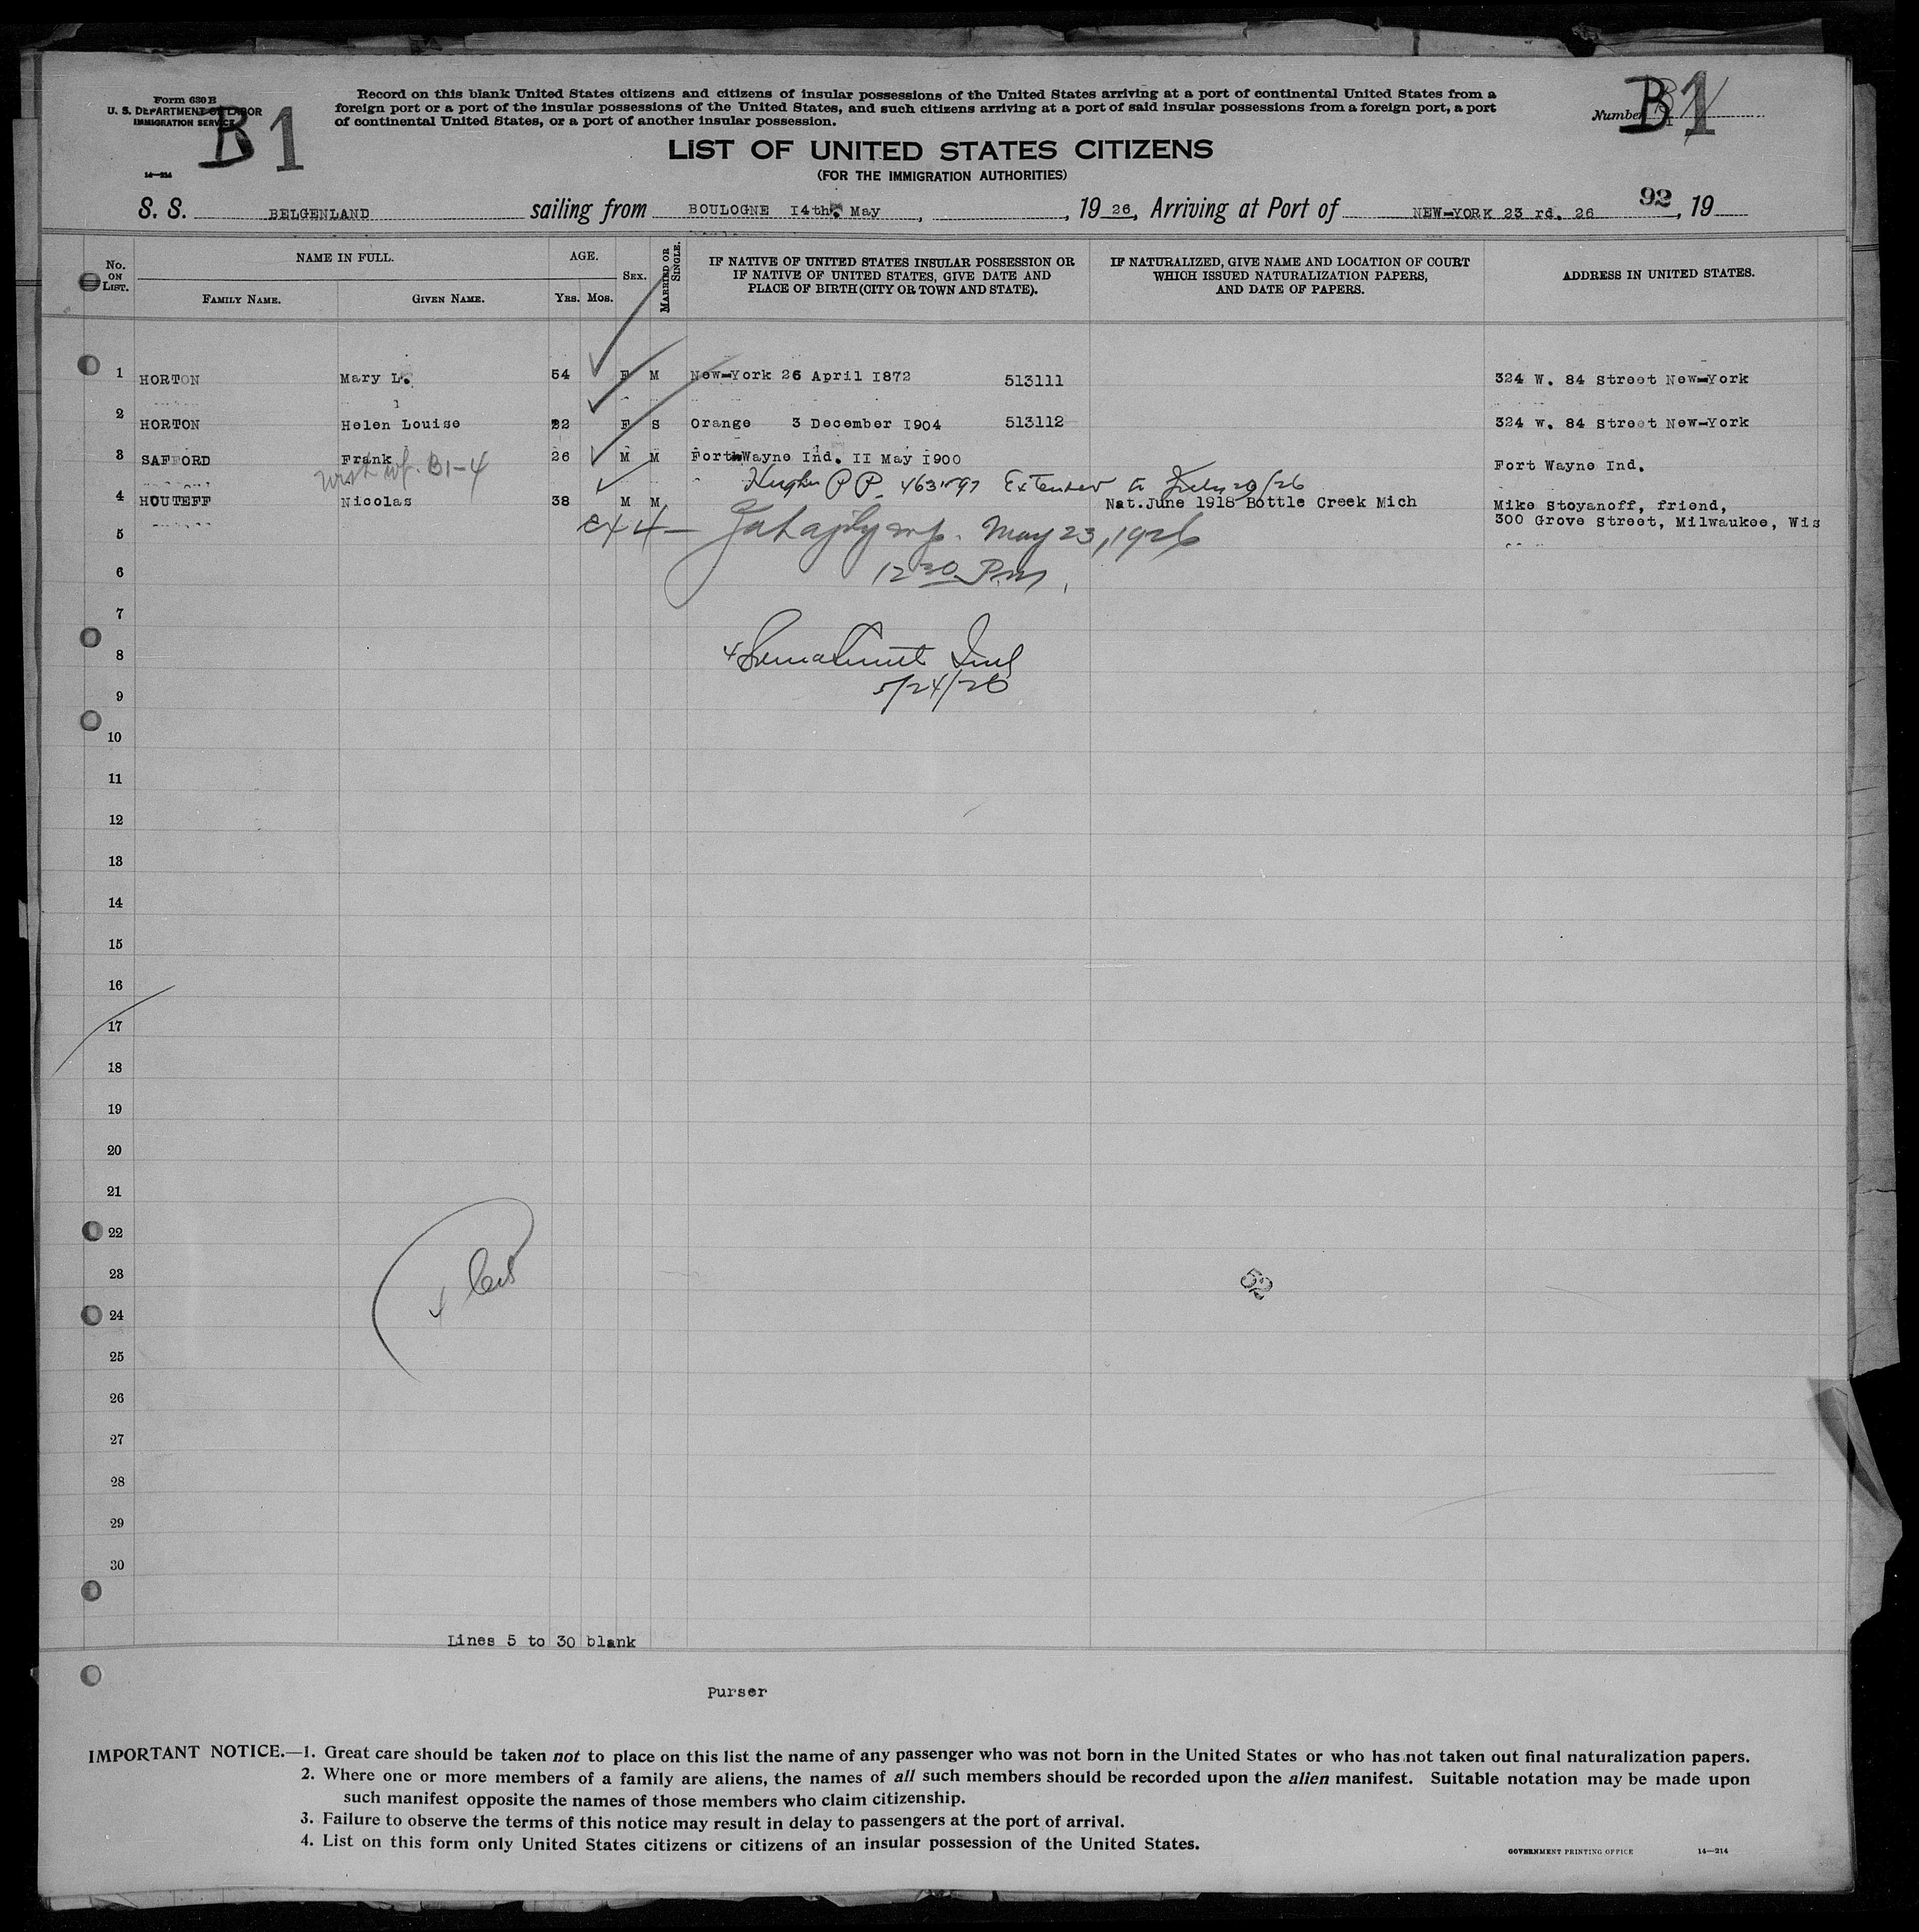 Form 630 B
U. S. DEPARTMENT OF LABOR
IMMIGRATION SERVICE
B 1
14—214
Record on this blank United States citizens and citizens of insular possessions of the United States arriving at a port of continental United States from a
foreign port or a port of the insular possessions of the United States, and such citizens arriving at a port of said insular possessions from a foreign port, a port
of continental United States, or a port of another insular possession.
Number B1
LIST OF UNITED STATES CITIZENS
(FOR THE IMMIGRATION AUTHORITIES)
S. S. BELGENLAND sailing from BOULOGNE I4th. May, , 19 26, Arriving at Port of NEW-YORK 23 rd. 26 92, 19
No. ON LIST.
NAME IN FULL.
FAMILY NAME. GIVEN NAME.
AGE.
YRS. MOS.
SEX.
MARRIED OR SINGLE.
IF NATIVE OF UNITED STATES INSULAR POSSESSION OR
IF NATIVE OF UNITED STATES, GIVE DATE AND
PLACE OF BIRTH (CITY OR TOWN AND STATE).
IF NATURALIZED, GIVE NAME AND LOCATION OF COURT
WHICH ISSUED NATURALIZATION PAPERS,
AND DATE OF PAPERS.
ADDRESS IN UNITED STATES.
1 HORTON Mary L. 54 F M New-York 26 April I872 513111 324 W. 84 Street New-York
2 HORTON Helen Louise 22 F S Orange 3 December I904 513112 324 w. 84 Street New-York
3 SAFFORD Frank 26 M M Fort Wayne Ind. II May I900 Fort Wayne Ind.
B1-4
PP. Extended to July 20/26
4 HOUTEFF Nicolas 38 M M Nat.June 1918 Bottle Creek Mich Mike Stoyanoff, friend,
300 Grove Street, Milwaukee, Wis
5 May 23, 1926
6 12 30 P.M.
7
8
9 5/24/26
10
11
12
13
14
15
16
17
18
19
20
21
22
23 52
24
25
26
27
28
29
30
Lines 5 to 30 blank
Purser
IMPORTANT NOTICE.—1. Great care should be taken not to place on this list the name of any passenger who was not born in the United States or who has not taken out final naturalization papers.
2. Where one or more members of a family are aliens, the names of all such members should be recorded upon the alien manifest. Suitable notation may be made upon
such manifest opposite the names of those members who claim citizenship.
3. Failure to observe the terms of this notice may result in delay to passengers at the port of arrival.
4. List on this form only United States citizens or citizens of an insular possession of the United States.
GOVERNMENT PRINTING OFFICE 14—214